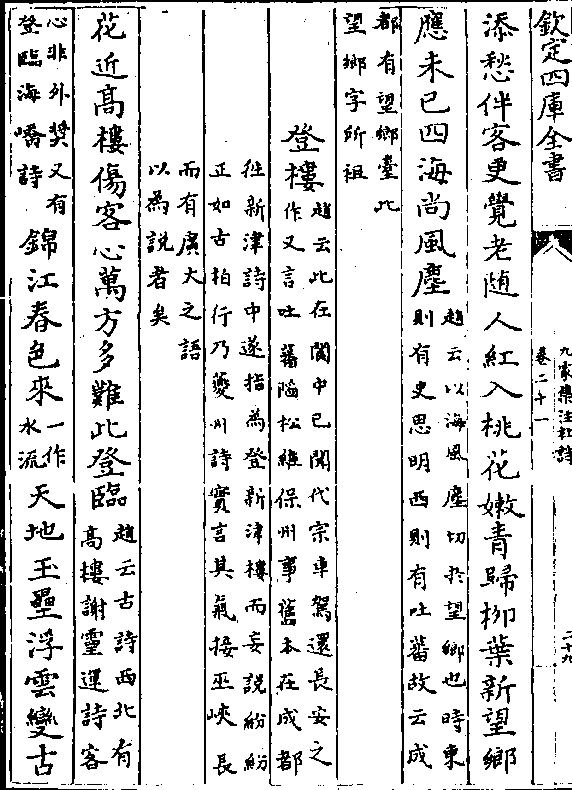 欽定四庫全書
九家集注杜詩
卷二十一
二十九
添愁伴客更覺老隨人紅入桃花嫩青歸柳葉新望鄉
應未已四海尚風塵趙云以海風塵切於望鄉也時東
則有史思明西則有吐蕃故云成
都有望鄉臺此
望鄉字所祖
登樓趙云此在閬中已聞代宗車駕還長安之
作又言吐蕃陷松維保州事舊本在成都
徃新津詩中遂指為登新津樓而妄說紛紛
正如古柏行乃夔州詩實言其氣接巫峽長
而有廣大之語
以為說者矣
花近高樓傷客心萬方多難此登臨趙云古詩西北有
高樓謝靈運詩客
心非外奬又有
登臨海嶠詩
錦江春色來一作
水流
天地玉壘浮雲變古